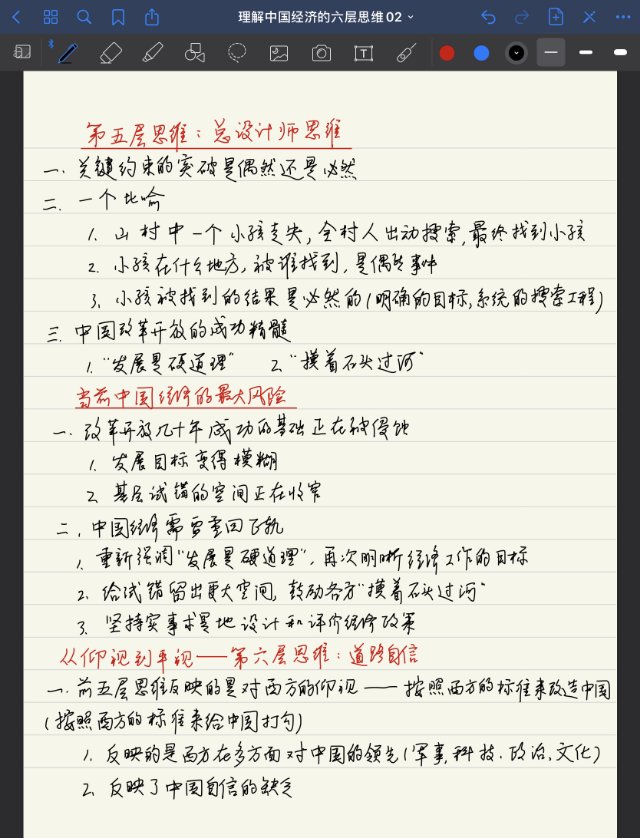 理解中国经济的六层思维 02
第五层思维：总设计师思维
一. 关键约束的突破是偶然还是必然
二. 一个比喻
1. 山村中一个小孩走失，全村人出动搜索，最终找到小孩
2. 小孩在什么地方，被谁找到，是偶然事件
3. 小孩被找到的结果是必然的(明确的目标，系统的搜索工程)
三. 中国改革开放的成功精髓
1. "发展是硬道理" 2. "摸着石头过河"
当前中国经济的最大风险
一. 改革开放几十年成功的基础正在被侵蚀
1. 发展目标变得模糊
2. 基层试错的空间正在收窄
二. 中国经济需要重回正轨
1. 重新强调"发展是硬道理"，再次明晰经济工作的目标
2. 给试错留出更大空间，鼓励各方"摸着石头过河"
3. 坚持实事求是地设计和评价经济政策
从仰视到平视——第六层思维：道路自信
一. 前五层思维反映的是对西方的仰视——按照西方的标准来改造中国
(按照西方的标准来给中国打勾)
1. 反映的是西方在多方面对中国的领先(军事，科技、政治、文化)
2. 反映了中国自信的缺乏